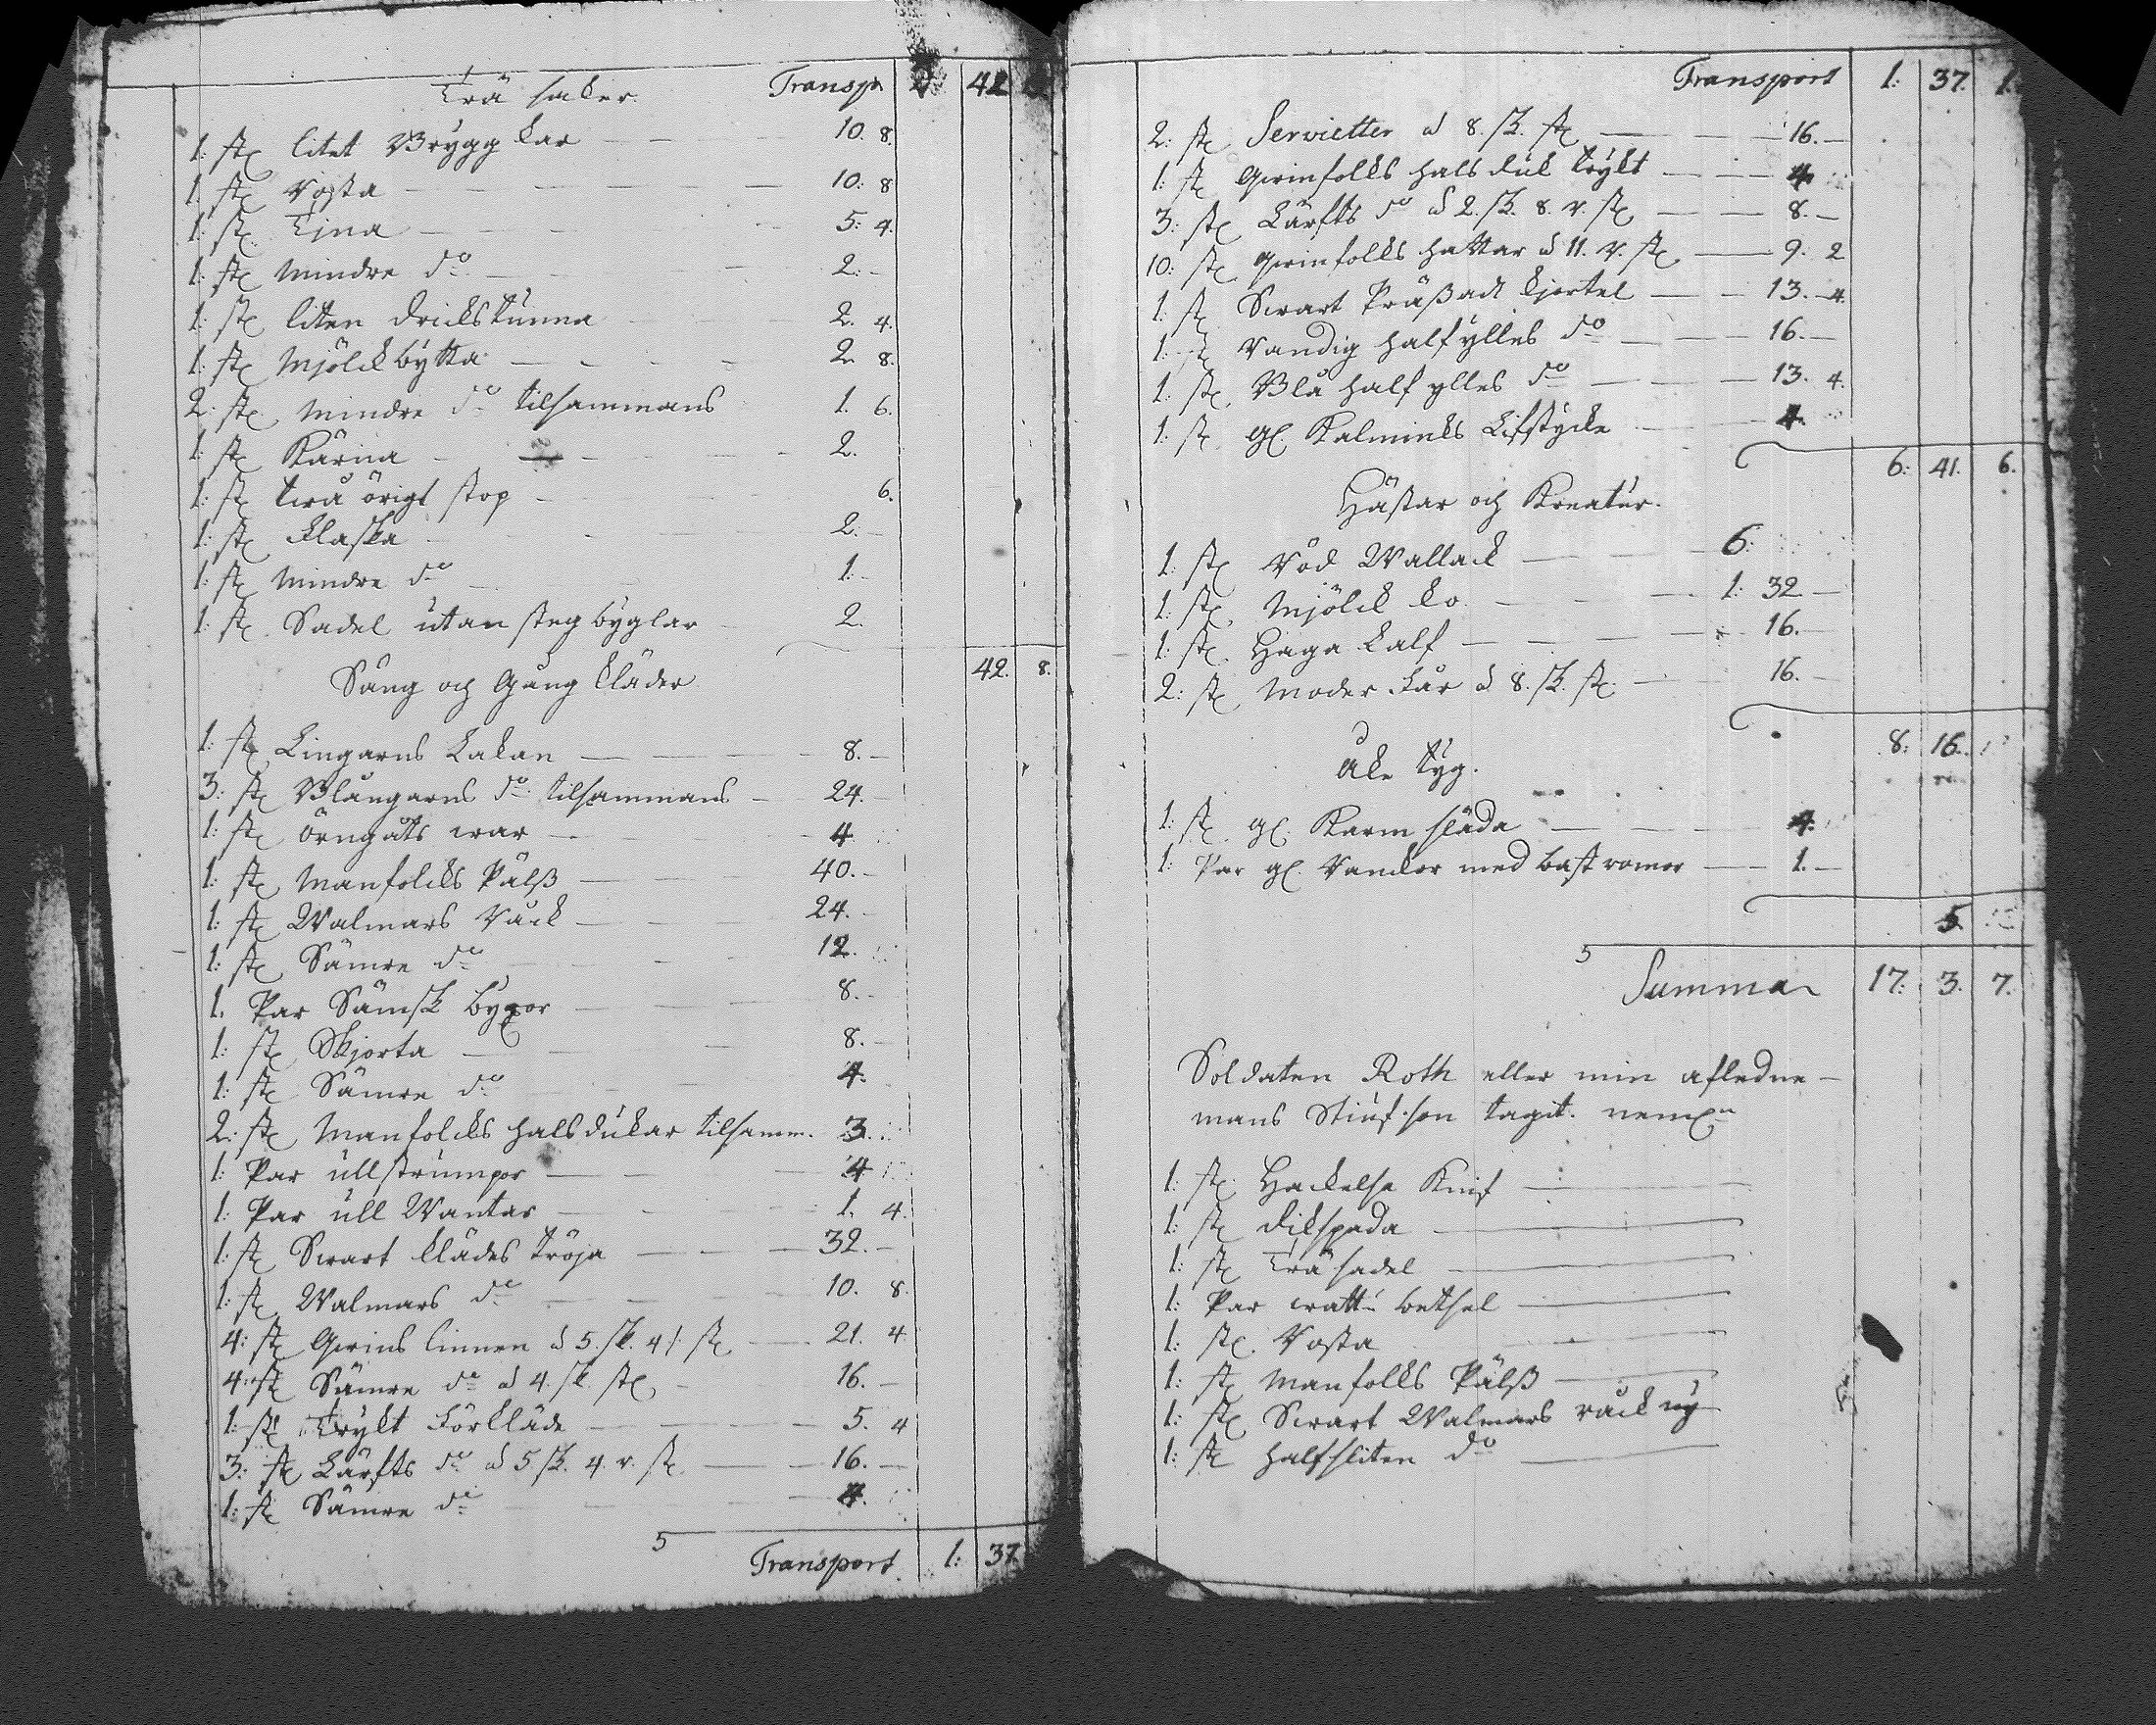 Trä saker. Transp. 42
1: st. litet Brygg kar 10. 8.
1. st. Roska 10: 8
1: st. Tina 5: 4.
1: st. Mindre do 2:
1: st. liten drickstunna 2. 4.
1: st. Mjölckbytta 2. 8.
2: st. mindre do tilsammans 1. 6.
1: st. Kärna 2.
1: st. örigt stop 6.
1: st. flaska 2:
1: st. Mindre do 1:
1: st. Sadel utan stegbyglar 2.
42. 8.
Säng och Gång kläder
1: st. Lingarns Lakan 8.
3: st. Blångarns do tilsammans 24.
1: st. örngåts war 4
1: st. Manfolcks Pälß 40.
1: st. Walmars Råck 24.
1: st. Sämre do 12.
1. Par Sämsk byxor 8.
1: st. Skjorta 8.
1: st. Sämre do 4.
2: st. Manfolcks halsdukar tilsamm. 3.
1: Par ullstrumpor 4
1: Par ull Wantar 1. 4.
1: st. Swart klädes tröja 32.
1: st. Walmars do 10. 8.
4: st. Qwins linnen á 5. sk. 4 st. 21. 4
4: st. Sämre do á 4. sk. st. 16.
1: st. Trykt förkläde 5. 4
3: st. Lärfts do á 5 sk. 4. r. st. 16.
1: st. Sämre do 4.
Transport 1: 37.
Transport 1: 37. 1.
2: st. Servietter á 8. sk. st. 16.
1: st. Qwinfolks halsduk trykt 4
3: st. Lärfts do á 2. sk. 8. r. st. 8.
10: st. Qwinfolks hattar á 11. r. st. 9. 2
1: st. Swart Präßadt kjortel 13. 4.
1: st. Randig halfylles do 16.
1: st. Blå halfylles do 13. 4.
1: st. gl. Kalminks Lifstycke 4.
6: 41. 6.
Hästar och Kreatur.
1: st. Röd Wallack 6:
1: st. Mjölck ko 1: 32
1: st. kalf 16.
2: st. Moder får á 8. sk. st. 16.
8: 16.
Åke tyg.
1: st. gl. Karm släda 4.
1: Par gl. med bast 1.
5.
Summa 17: 3. 7.
Soldaten Roth eller min afledne
mans Stiufson tagit. neml.
1: st. Hackelse Knif
1: st. dikspada
1: st. Träsadel
1: Par bethsel
1: st. Roska
1: st. Manfolks Pälß
1: st. Swart Walmars råck ny
1: st. halfsliten do